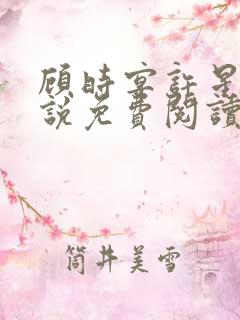 顾時宴許星
說免費閱讀
筒井美雪